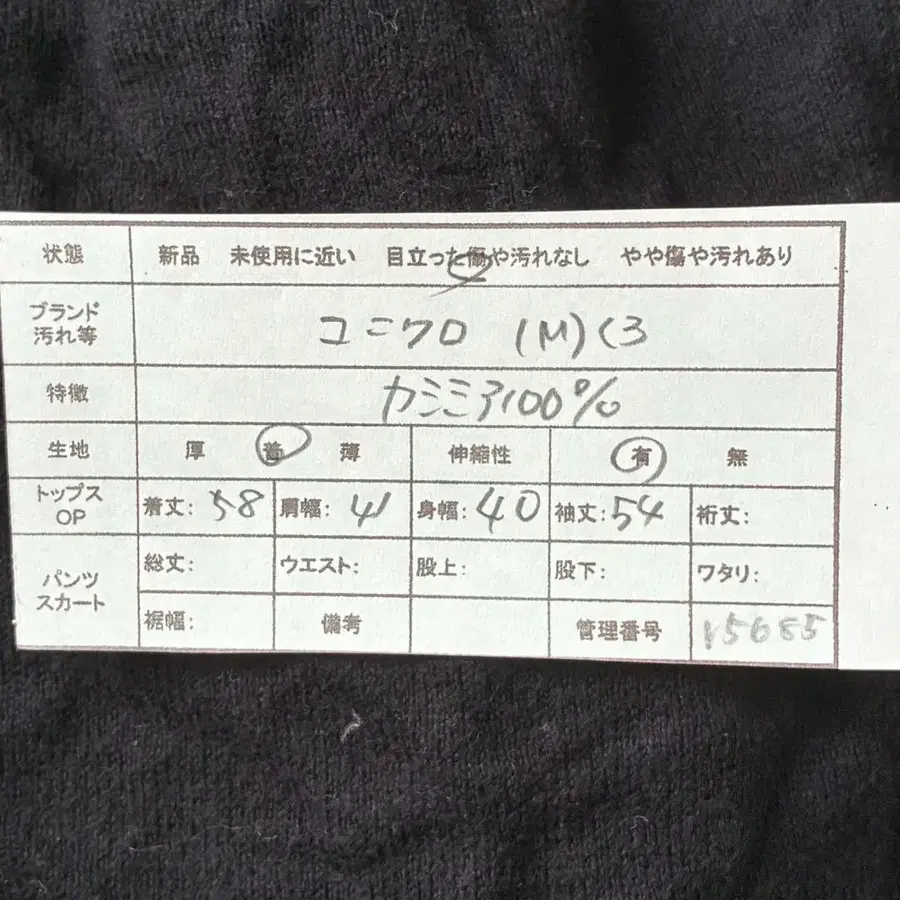 状態 新品 未使用に近い 目立った傷や汚れなし やや傷や汚れあり
ブランド
汚れ等 ユニクロ (M) くろ
特徴 カシミア100%
生地 厚 普 薄 伸縮性 有 無
トップス
OP 着丈: 58 肩幅: 41 身幅: 40 袖丈: 54 裄丈:
パンツ
スカート 総丈: ウエスト: 股上: 股下: ワタリ:
裾幅: 備考 管理番号 Y5685